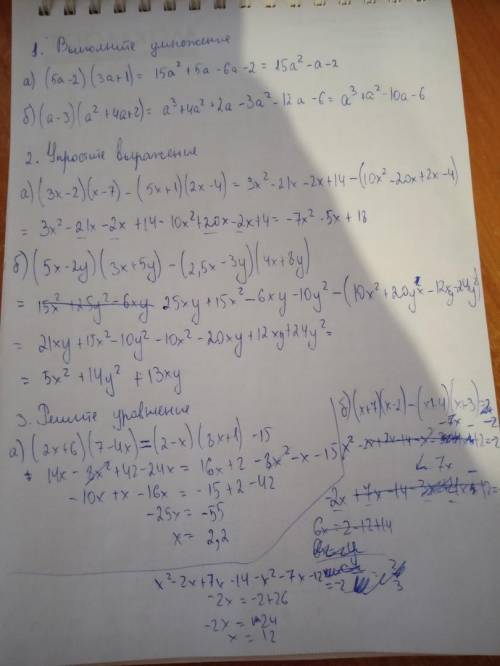 1. Выполните умножение
а) (5a-2)(3a+1) = 15a² + 5a - 6a - 2 = 15a² - a - 2
б) (a-3)(a²+4a+2) = a³ + 4a² + 2a - 3a² - 12a - 6 = a³ + a² - 10a - 6
2. Упростите выражение
а) (3x-2)(x-7) - (5x+1)(2x-4) = 3x² - 21x - 2x + 14 - (10x² - 20x + 2x - 4)
= 3x² - 21x - 2x + 14 - 10x² + 20x - 2x + 4 = -7x² - 5x + 18
б) (5x-2y)(3x+5y) - (2,5x-3y)(4x+8y)
= 15x² + 25y² - 6xy 25xy + 15x² - 6xy - 10y² - (10x² + 20yx - 12xy - 24y²)
= 21xy + 15x² - 10y² - 10x² - 20xy + 12xy + 24y² =
= 5x² + 14y² + 13xy
3. Решите уравнение
а) (2x+6)(7-4x) = (2-x)(8x+1) - 15
14x - 8x² + 42 - 24x = 16x + 2 - 8x² - x - 15
-10x + x - 16x = -15 + 2 - 42
-25x = -55
x = 2,2
б) (x+7)(x-2) - (x+4)(x+3) = -2
6x = 2 - 12 + 14
x² - 2x + 7x - 14 - x² - 7x - 12 = -2
-2x = -2 + 26
-2x = 24
x = 12